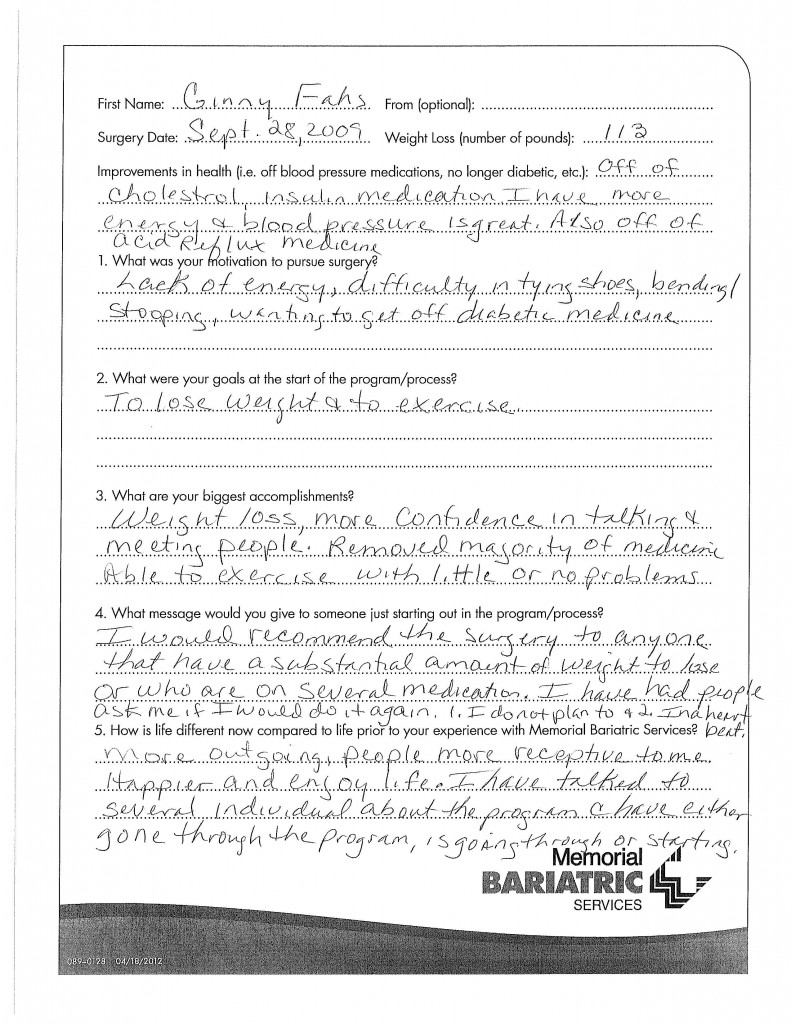 First Name: Ginny Fahs From (optional):
Surgery Date: Sept. 28, 2009 Weight Loss (number of pounds): 113
Improvements in health (i.e. off blood pressure medications, no longer diabetic, etc.): Off of
Cholestrol, Insulin medication I have more
energy & blood pressure is great. Also off of
acid Reflux medicine
1. What was your motivation to pursue surgery?
Lack of energy, difficulty in tying shoes, bending/
stooping, wanting to get off diabetic medicine
2. What were your goals at the start of the program/process?
To lose weight & to exercise.
3. What are your biggest accomplishments?
Weight loss, more confidence in talking &
meeting people. Removed majority of medicine
Able to exercise with little or no problems
4. What message would you give to someone just starting out in the program/process?
I would recommend the surgery to anyone
that have a substantial amount of weight to lose
or who are on several medication. I have had people
ask me if I would do it again. 1. I do not plan to & 2. In a heart
5. How is life different now compared to life prior to your experience with Memorial Bariatric Services? beat.
More outgoing, people more receptive to me.
Happier and enjoy life. I have talked to
several individual about the program & have either
gone through the program, is going through or starting.
Memorial
BARIATRIC
SERVICES
089-0128 04/18/2012